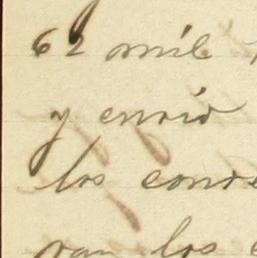 62 mil
y envio
los conve
van los